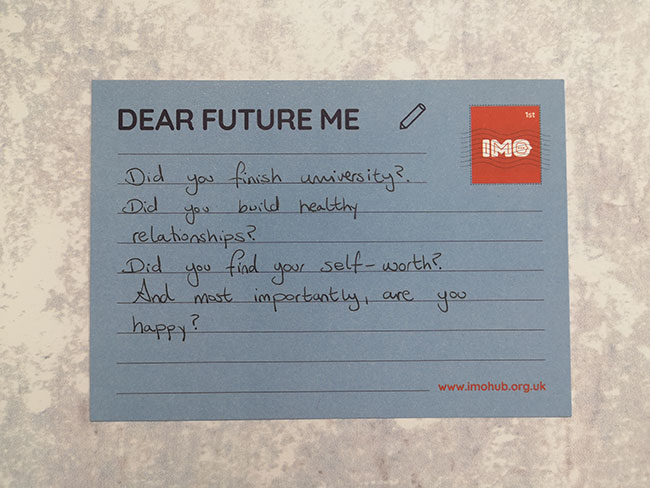 DEAR FUTURE ME
1st
IMO
Did you finish university?.
Did you build healthy
relationships?
Did you find your self-worth?
And most importantly, are you
happy?
www.imohub.org.uk